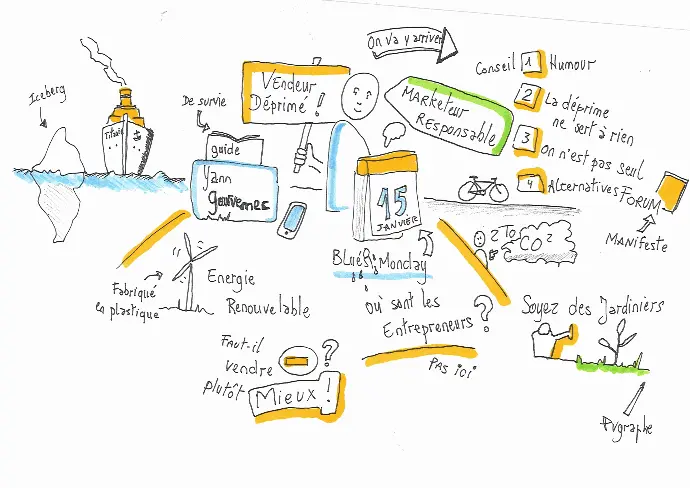 On va y arriver
Iceberg
Titanic
De survie
guide
Yann
gourvennec
Vendeur
Déprimé !
Marketeur
Responsable
Conseil 1 Humour
2 La déprime
ne sert à rien
3 On n'est pas seul
4 Alternatives
FORUM
MANifeste
15
JANVIER
Blues Monday
2 To
CO2
Fabriqué
en plastique
Energie
Renouvelable
Où sont les
Entrepreneurs ?
PAS ici
Soyez des Jardiniers
Faut-il
vendre
- ?
plutôt
Mieux !